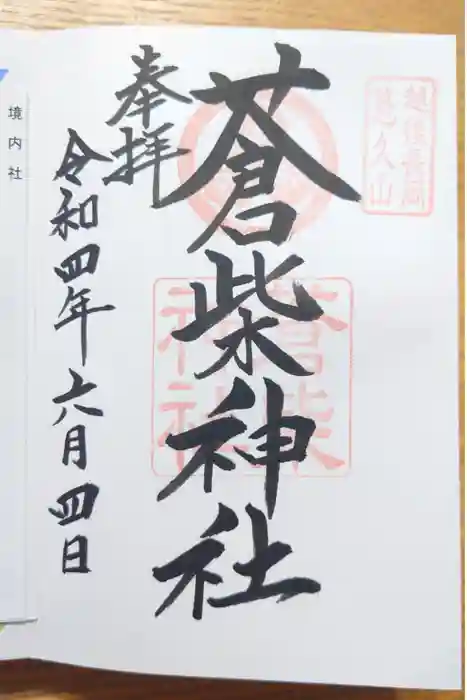 越後長岡
悠久山
蒼柴神社
蒼柴
神社
奉拝
令和四年六月四日
境内社